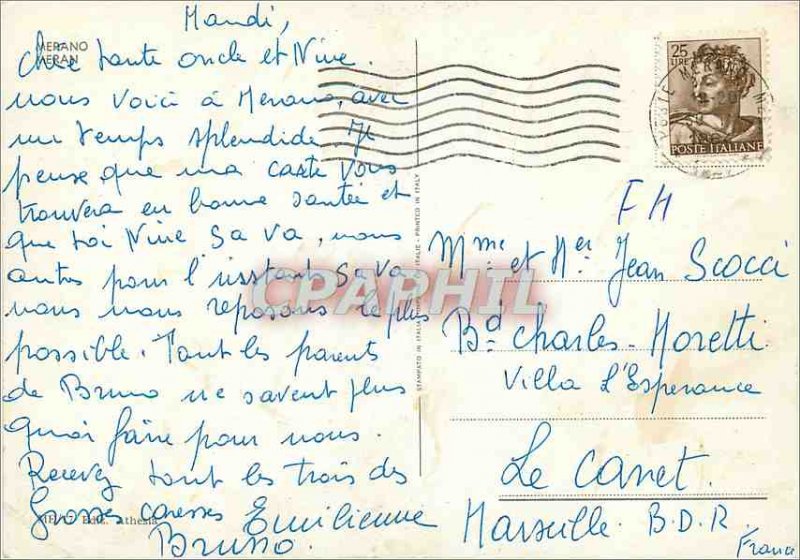 Mardi,
MERANO
MERAN
Cher tante oncle et Nine.
nous voici à Merano, avec
un temps splendide. Je
pense que ma carte vous
trouvera en bonne santée et
que toi Nine sa va, nous
autres pour l'instant sa va
nous nous reposons le plus
possible. Tout les parents
de Bruno ne savent plus
quoi faire pour nous.
Recevez tout les trois des
Grosses caresses Emilienne
Bruno.
Ediz. Athesia
STAMPATO IN ITALIA
PRINTED IN ITALY
25
LIRE
POSTE ITALIANE
FM
Mme et Mer Jean Scocci
Bd Charles-Moretti
Villa L'Esperance
Le Canet.
Marseille. B.D.R.
France
CPAPHIL